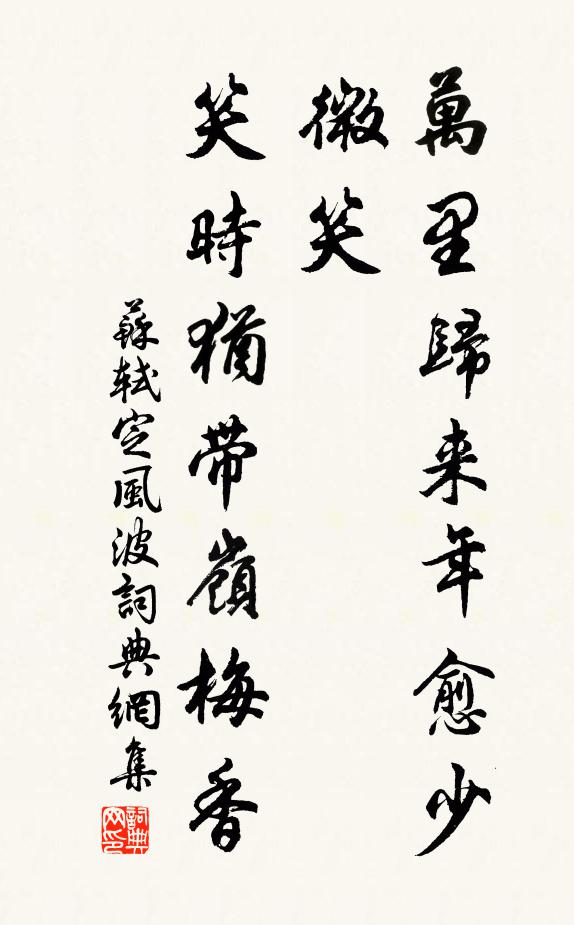 萬里歸来年愈少
微笑
笑時猶帶嶺梅香
蘇軾定風波詞典網集
詞典網印